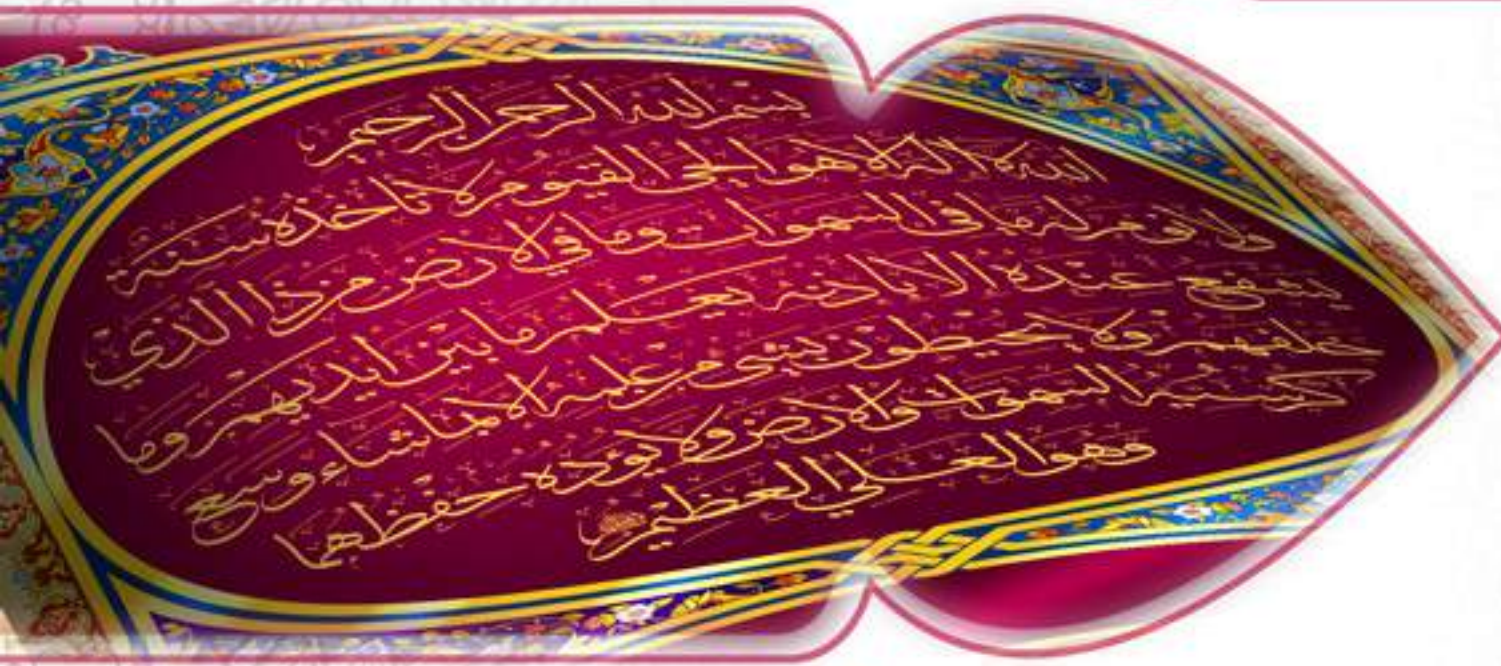 بسم الله الرحمن الرحيم
الله لا اله الا هو الحي القيوم لا تأخذه سنة
ولا نوم له ما في السموات وما في الارض من ذا الذي
يشفع عنده الا باذنه يعلم ما بين ايديهم وما
خلفهم ولا يحيطون بشيء من علمه الا بما شاء وسع
كرسيه السموات والارض ولا يؤده حفظهما
وهو العلي العظيم